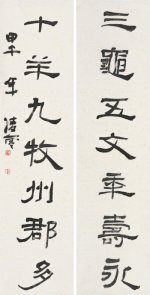 三龜五文年壽永
十羊九牧州郡多
甲午年